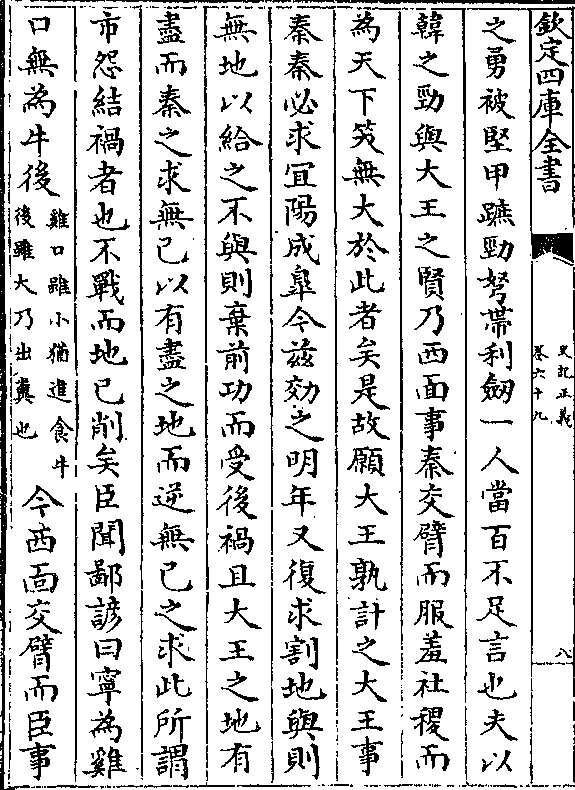 欽定四庫全書
史記正義
卷六十九
八
之勇被堅甲蹠勁弩帶利劒一人當百不足言也夫以
韓之勁與大王之賢乃西面事秦交臂而服羞社稷而
為天下笑無大於此者矣是故願大王孰計之大王事
秦秦必求宜陽成臯今兹効之明年又復求割地與則
無地以給之不與則棄前功而受後禍且大王之地有
盡而秦之求無已以有盡之地而逆無已之求此所謂
市怨結禍者也不戰而地已削矣臣聞鄙諺曰寧為雞
口無為牛後雞口雖小猶進食牛後雖大乃出糞也今西面交臂而臣事